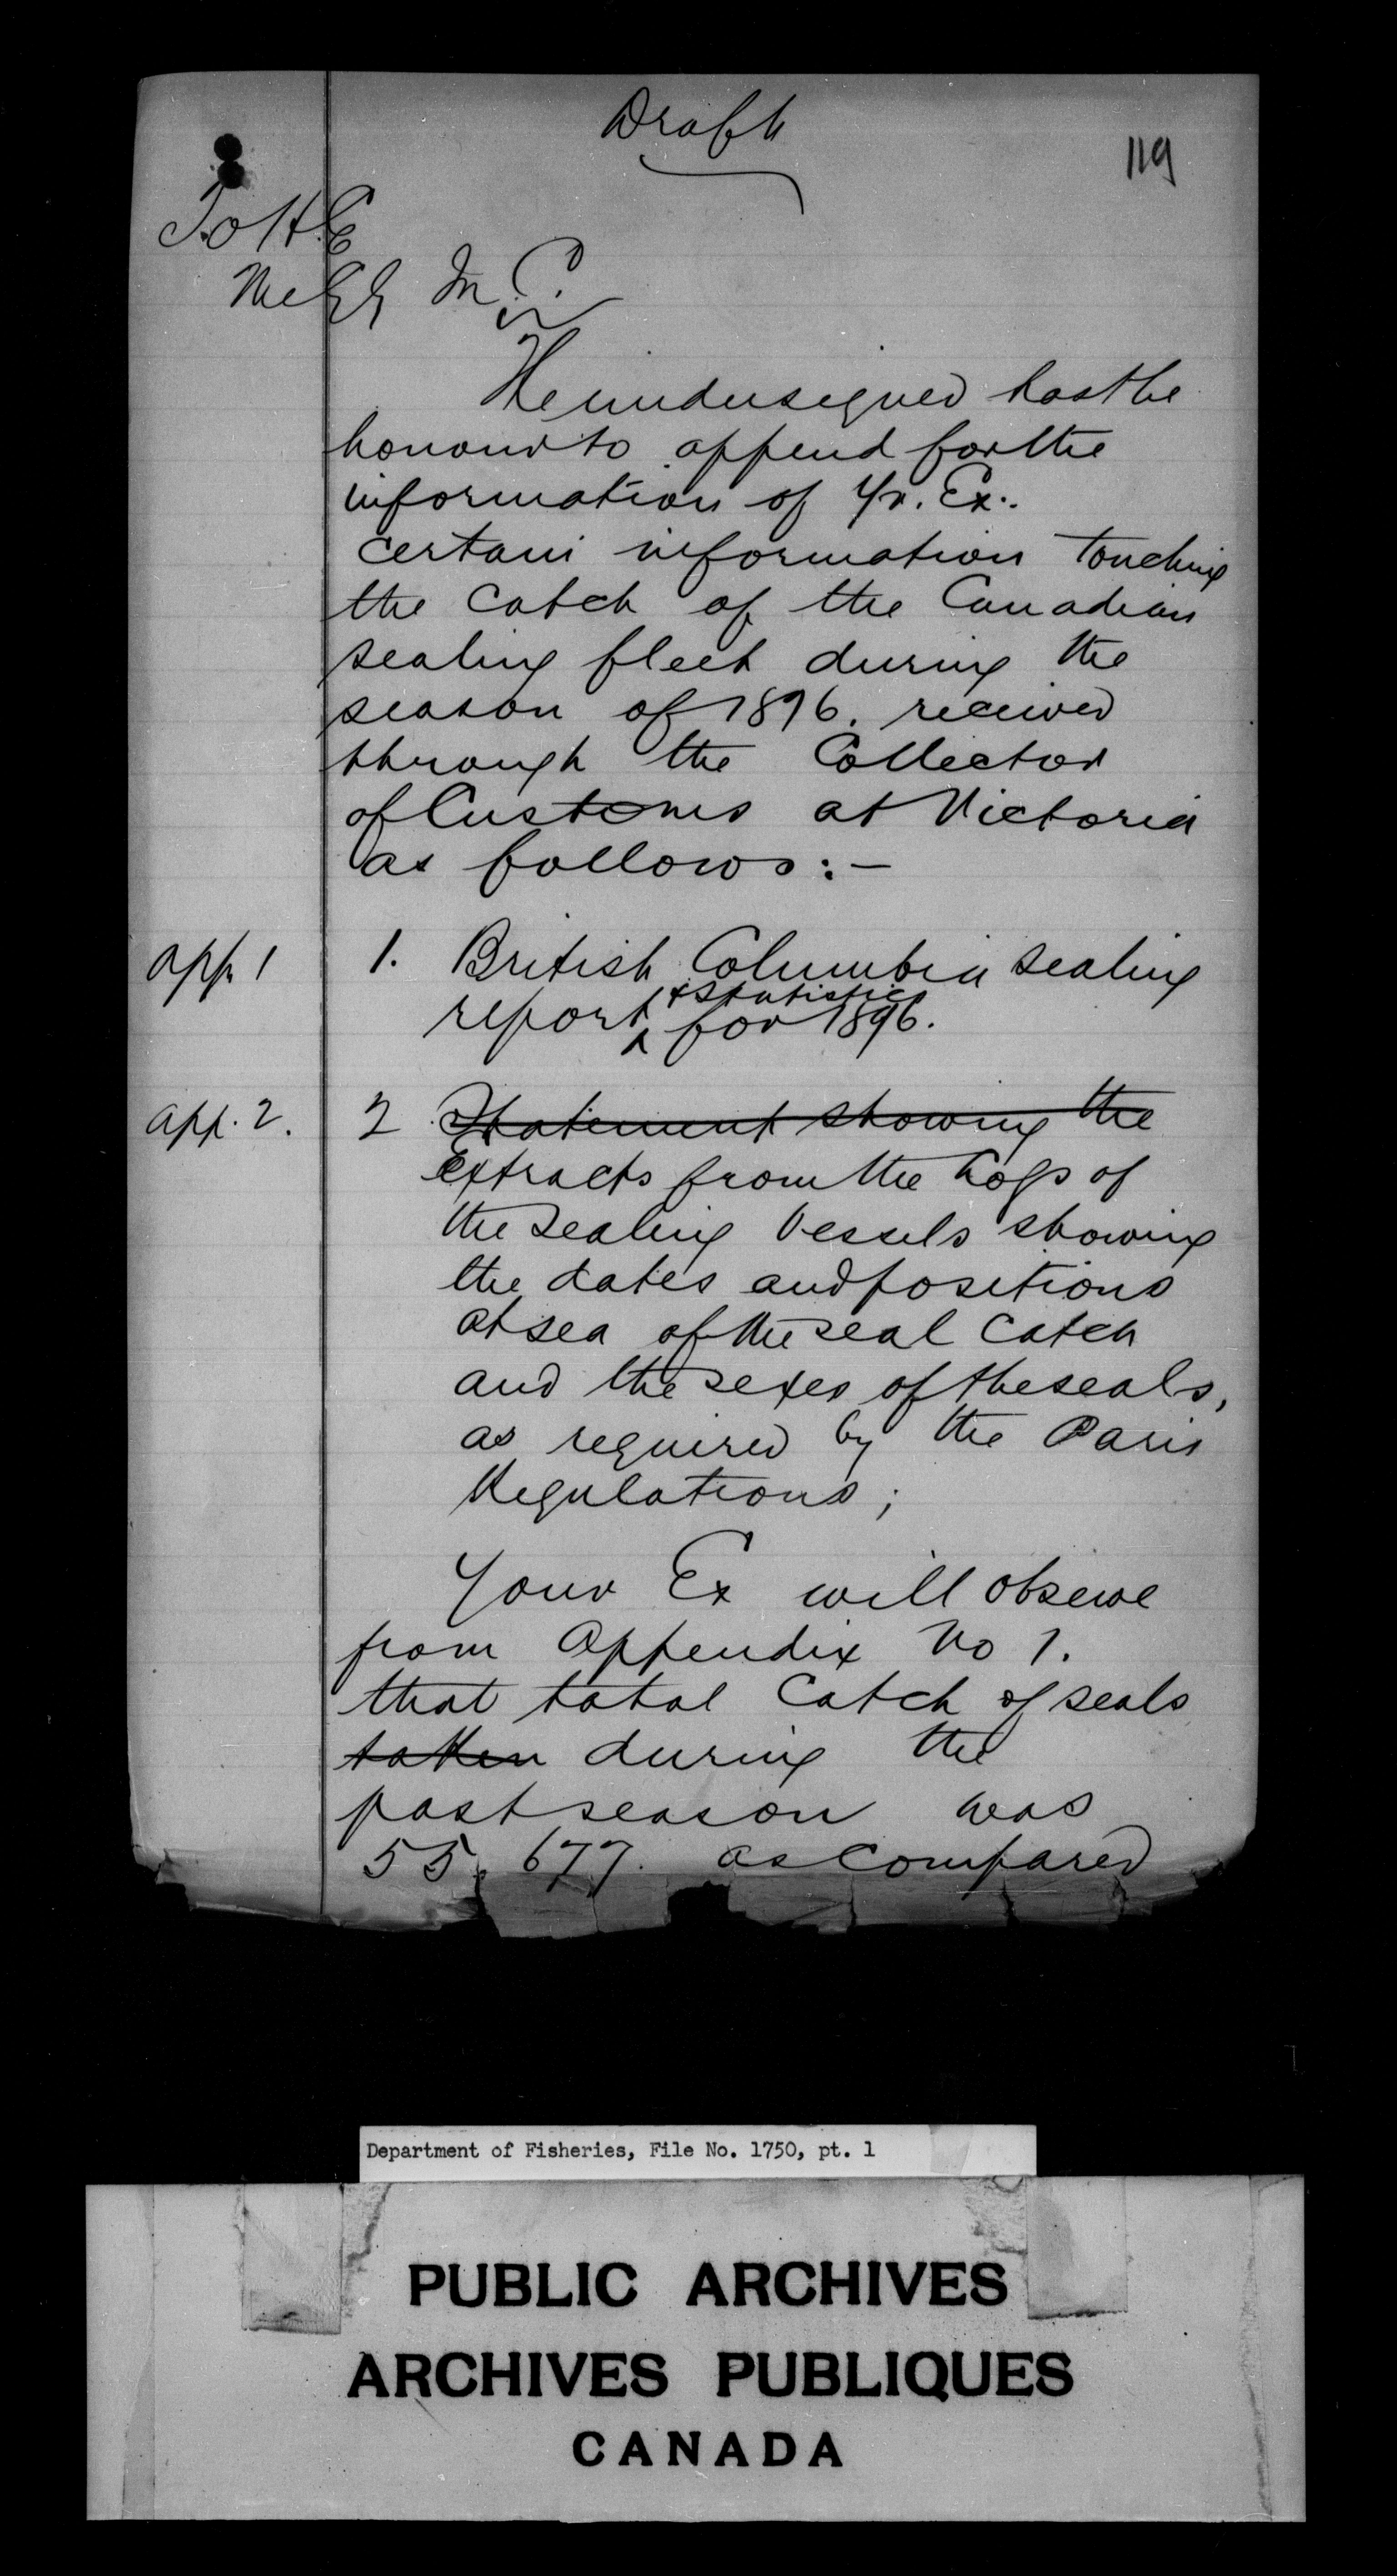 Draft
119
To H.E
The G G In C.
The undersigned has the
honour to append for the
information of Yr. Ex.
certain information touching
the Catch of the Canadian
sealing fleet during the
season of 1896. received
through the Collector
of Customs at Victoria
as follows:—
app 1 1. British Columbia sealing
& statistics
report ^ for 1896.
app. 2. 2 Statement showing the
Extracts from the Logs of
the sealing Vessels showing
the dates and positions
at sea of the seal Catch
and the sexes of the seals,
as required by the Paris
Regulations;
Your Ex will observe
from Appendix No 1.
that total Catch of seals
taken during the
past season was
55,677. as compared
Department of Fisheries, File No. 1750, pt. 1
PUBLIC ARCHIVES
ARCHIVES PUBLIQUES
CANADA